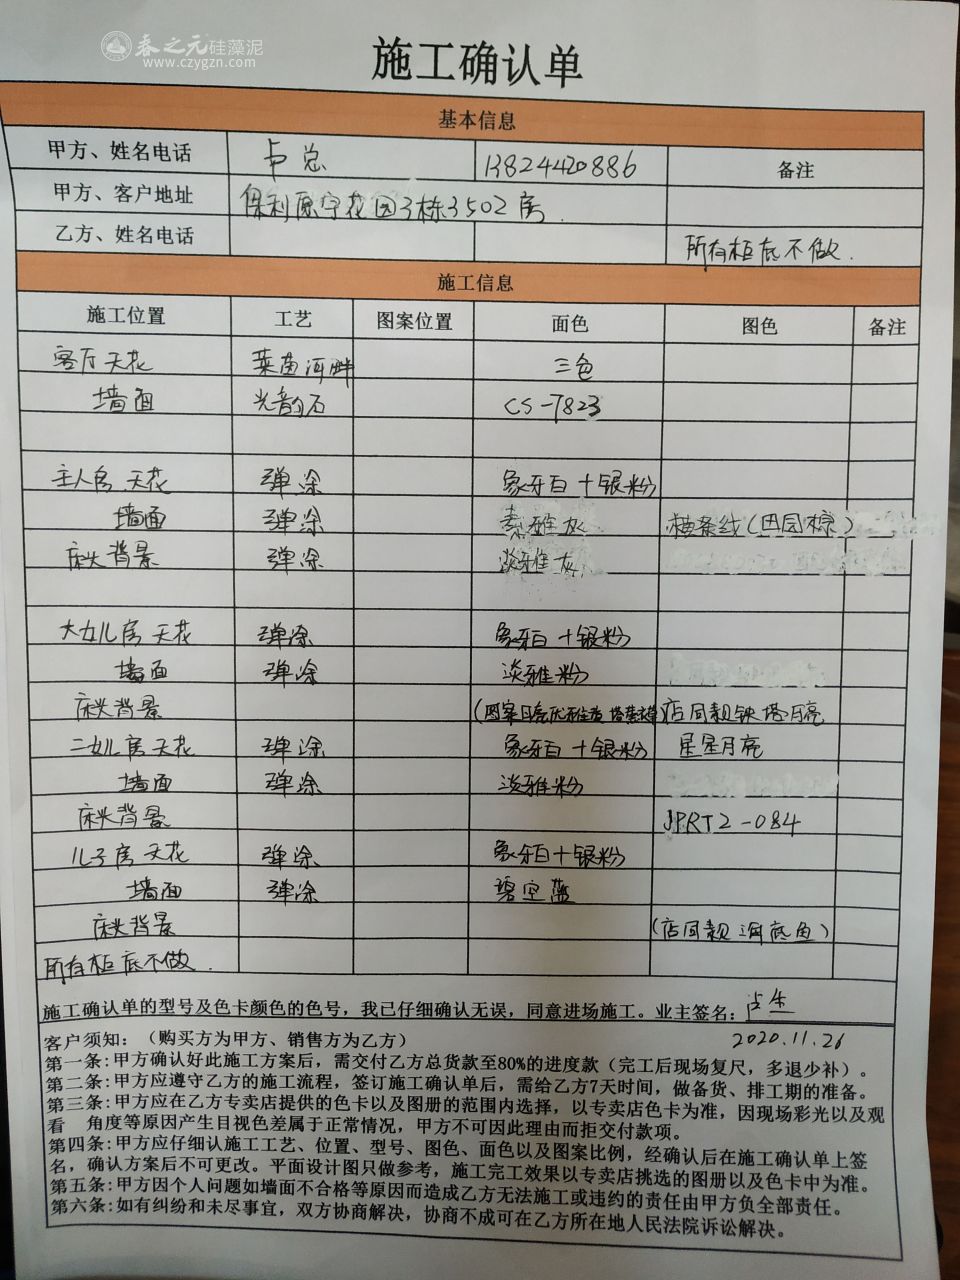 春之元硅藻泥
www.czygzn.com
施工确认单
基本信息
甲方、姓名电话 卢总 13824420886 备注
甲方、客户地址 保利原宇花园3栋3502房.
乙方、姓名电话 所有柜底不做.
施工信息
施工位置 工艺 图案位置 面色 图色 备注
客厅天花 莱茵河畔 三色
墙面 光韵石 CS-7823
主人房天花 弹涂 象牙白+银粉
墙面 弹涂 素雅灰 横条线(田园棕)
床头背景 弹涂 淡雅灰
大女儿房天花 弹涂 象牙白+银粉
墙面 弹涂 淡雅粉
床头背景 店同款铁塔月亮
二女儿房天花 弹涂 象牙白+银粉 星星月亮
墙面 弹涂 淡雅粉
床头背景 JPRT2-084
儿子房天花 弹涂 象牙白+银粉
墙面 弹涂 碧空蓝
床头背景 (店同款海底鱼)
所有柜底不做.
施工确认单的型号及色卡颜色的色号，我已仔细确认无误，同意进场施工。业主签名：卢生
客户须知：（购买方为甲方、销售方为乙方） 2020.11.26
第一条:甲方确认好此施工方案后，需交付乙方总货款至80%的进度款（完工后现场复尺，多退少补）。
第二条:甲方应遵守乙方的施工流程，签订施工确认单后，需给乙方7天时间，做备货、排工期的准备。
第三条:甲方应在乙方专卖店提供的色卡以及图册的范围内选择，以专卖店色卡为准，因现场彩光以及观
看 角度等原因产生目视色差属于正常情况，甲方不可因此理由而拒交付款项。
第四条:甲方应仔细认施工工艺、位置、型号、图色、面色以及图案比例，经确认后在施工确认单上签
名，确认方案后不可更改。平面设计图只做参考，施工完工效果以专卖店挑选的图册以及色卡中为准。
第五条:甲方因个人问题如墙面不合格等原因而造成乙方无法施工或违约的责任由甲方负全部责任。
第六条:如有纠纷和未尽事宜，双方协商解决，协商不成可在乙方所在地人民法院诉讼解决。